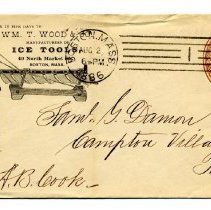 IN FIVE DAYS TO
WM. T. WOOD &
MANUFACTURERS OF
ICE TOOLS,
40 North Market
BOSTON, MASS.
BOSTON, MASS.
AUG 2
6 PM
Saml. G. Damon
Campton Villa
A. B. Cook